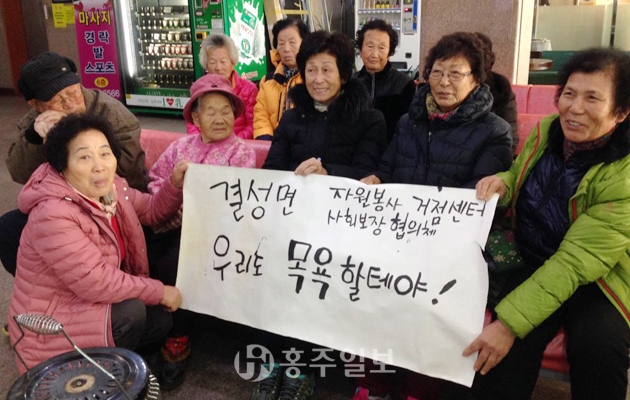 마사지
경락
발
스포츠
6566
결성면 자원봉사 거점센터
사회보장 협의체
우리도 목욕 할테야!
홍주일보